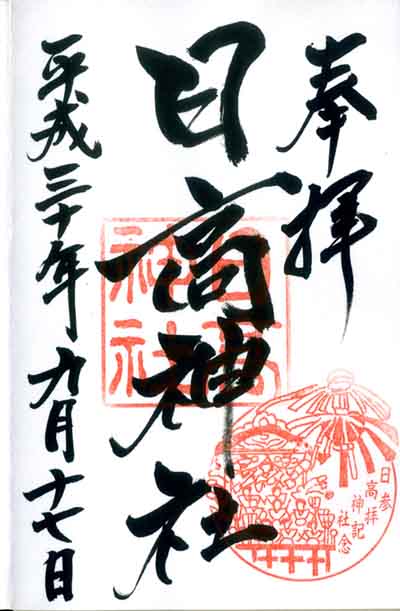 奉拝
日高神社
平成三十年九月十七日
日高神社
日高神社
参拝記念